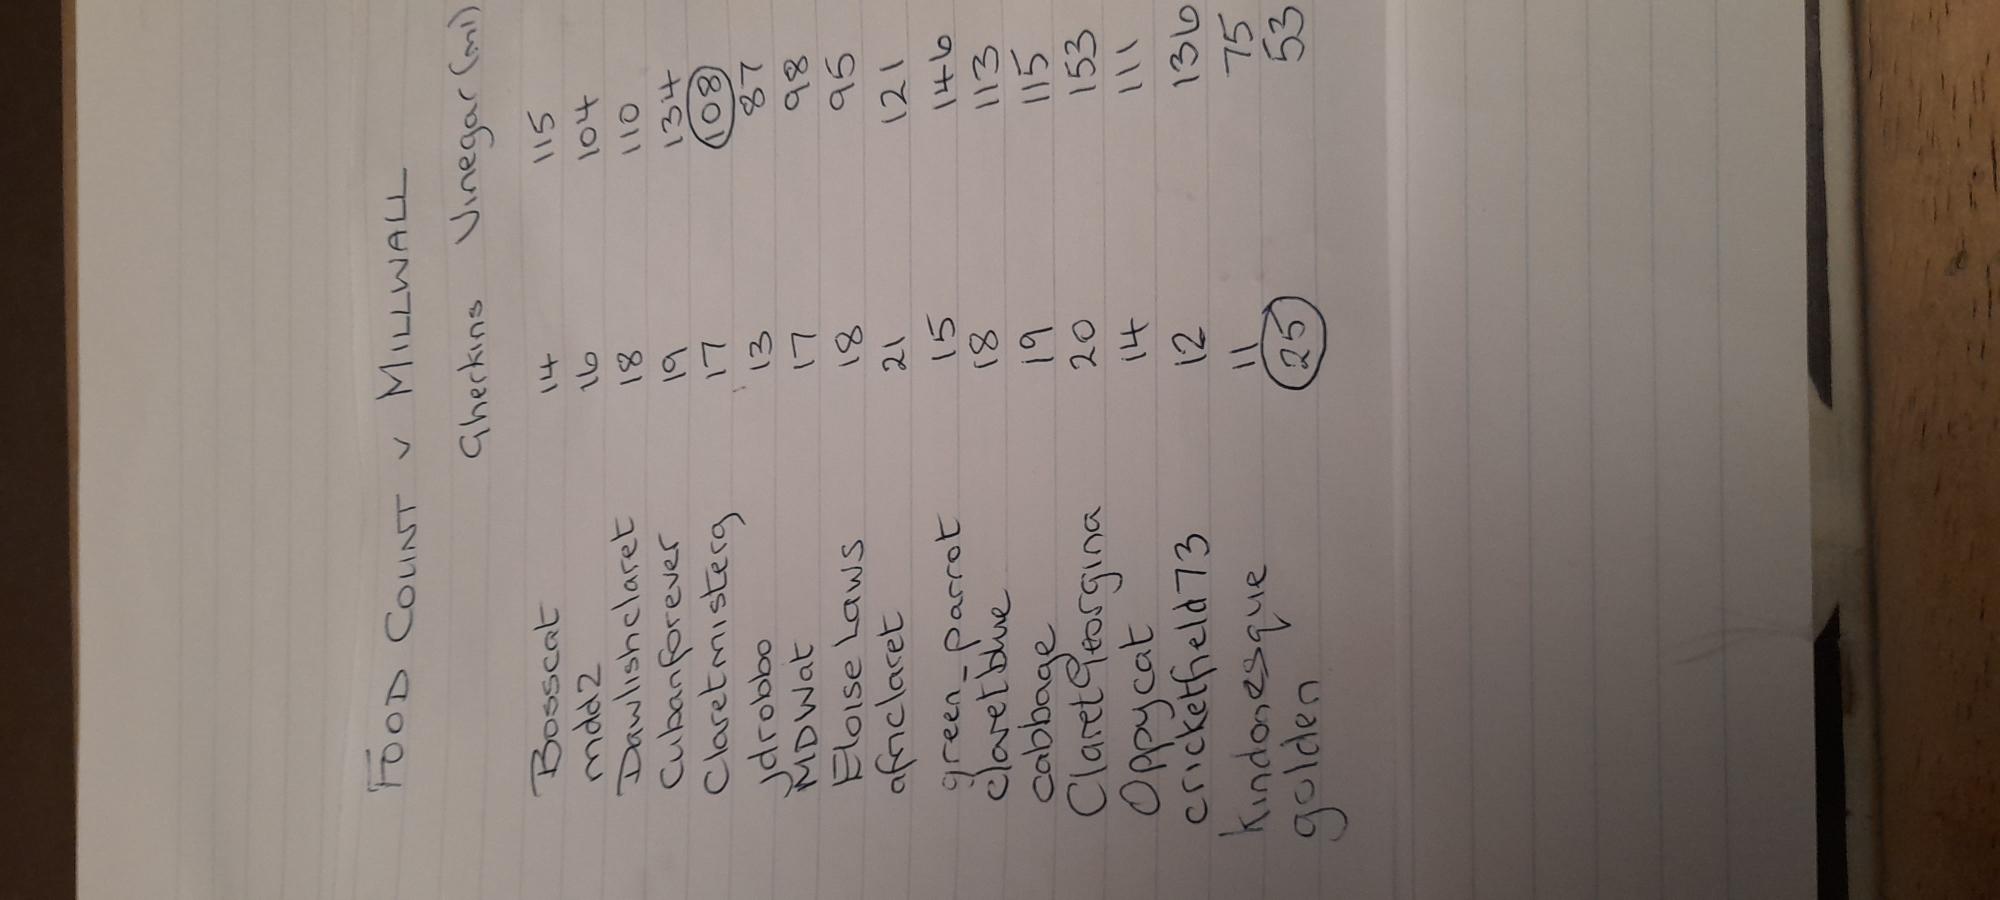 FOOD COUNT v MILLWALL
Gherkins Vinegar (ml)
Bosscat 14 115
mdd2 16 104
Dawlishclaret 18 110
Cubanforever 19 134
Claretmisterg 17 108
jdrobbo 13 87
MDWat 17 98
Eloise Laws 18 95
africlaret 21 121
green_parrot 15 146
claretblue 18 113
cabbage 19 115
ClaretGeorgina 20 153
Oppycat 14 111
cricketfield73 12 136
kindonesque 11 75
golden 25 53